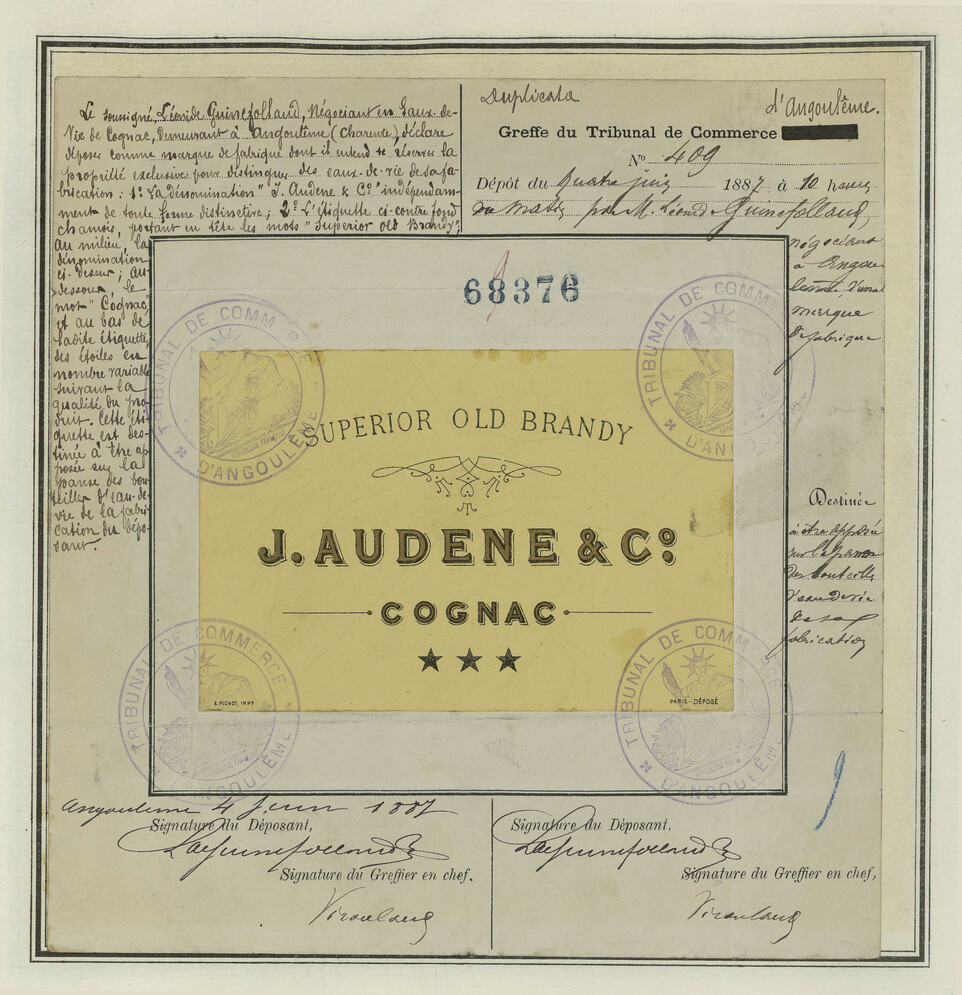 Le soussigné, Léonide Guinefolland, Négociant en Eaux-de-
Vie de Cognac, Demeurant à Angoulême (Charente), déclare
déposer comme marque de fabrique dont il entend se réserver la
propriété exclusive pour distinguer des eaux-de-vie de sa fa-
brication: 1º La dénomination "J. Audene & Cº" indépendam-
ment de toute forme distinctive; 2º L'étiquette ci-contre fond
chamois, portant en tête les mots "Superior old Brandy";
au milieu, la
dénomination
ci-dessus; au-
dessous, le
mot "Cognac,
et au bas de
ladite étiquette,
des étoiles en
nombre variable
suivant la
qualité du pro-
duit. Cette éti-
quette est des-
tinée à être ap-
posée sur la
panse des bou-
teilles d'eau-de-
vie de la fabri-
cation du dépo-
sant.
Duplicata
d'Angoulême.
Greffe du Tribunal de Commerce
Nº 409
Dépôt du quatre juin 1887 à 10 heures
du matin par M. Léonide Guinefolland,
négociant
à Angou-
lême, d'une
marque
de fabrique
68376
TRIBUNAL DE COMMERCE D'ANGOULÊME
TRIBUNAL DE COMMERCE D'ANGOULÊME
SUPERIOR OLD BRANDY
J. AUDENE & Cº
COGNAC
★ ★ ★
E. PICHOT, IMPR
PARIS - DÉPOSÉ
TRIBUNAL DE COMMERCE D'ANGOULÊME
TRIBUNAL DE COMMERCE D'ANGOULÊME
Destinée
à être apposée
sur la panse
des bouteilles
d'eau de vie
de sa
fabrication
Angoulême 4 Juin 1887
Signature du Déposant,
Signature du Greffier en chef,
Signature du Déposant,
Signature du Greffier en chef,